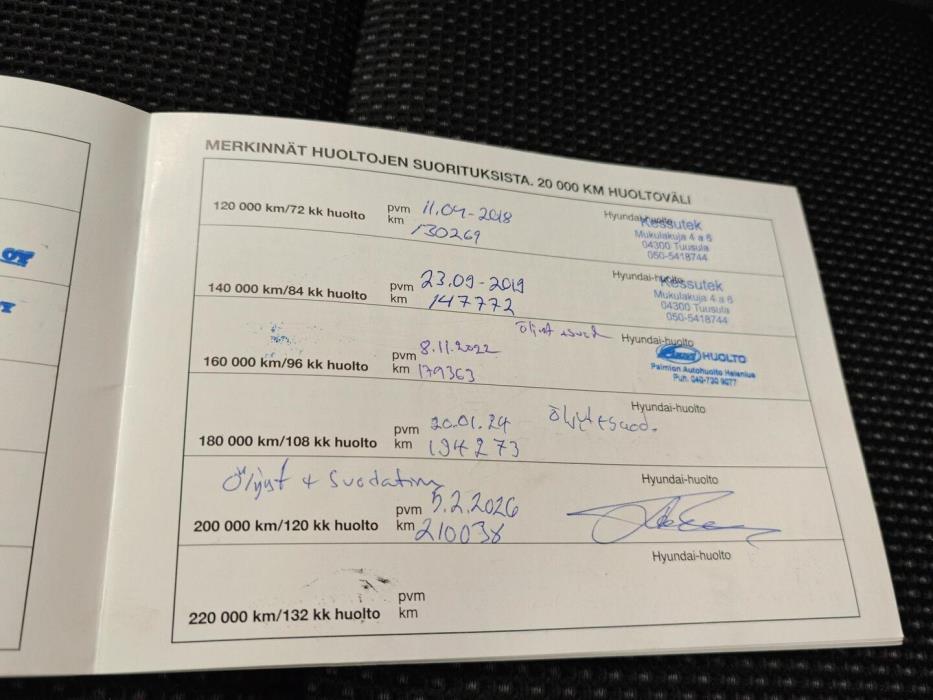 MERKINNÄT HUOLTOJEN SUORITUKSISTA. 20 000 KM HUOLTOVÄLI
120 000 km/72 kk huolto
pvm 11.04-2018
km 130269
Hyundai-huolto
Kessutek
Mukulakuja 4 a 6
04300 Tuusula
050-5418744
140 000 km/84 kk huolto
pvm 23.09-2019
km 147772
Hyundai-huolto
Kessutek
Mukulakuja 4 a 6
04300 Tuusula
050-5418744
160 000 km/96 kk huolto
pvm 8.11.2022
km 179363
Öljyt + suod
Hyundai-huolto
HUOLTO
Paimion Autohuolto Helenius
Puh. 040-730 9077
180 000 km/108 kk huolto
pvm 20.01.24
km 194273
Öljyt + suod.
Hyundai-huolto
Öljyt + Suodatin
200 000 km/120 kk huolto
pvm 5.2.2026
km 210038
Hyundai-huolto
220 000 km/132 kk huolto
pvm
km
Hyundai-huolto